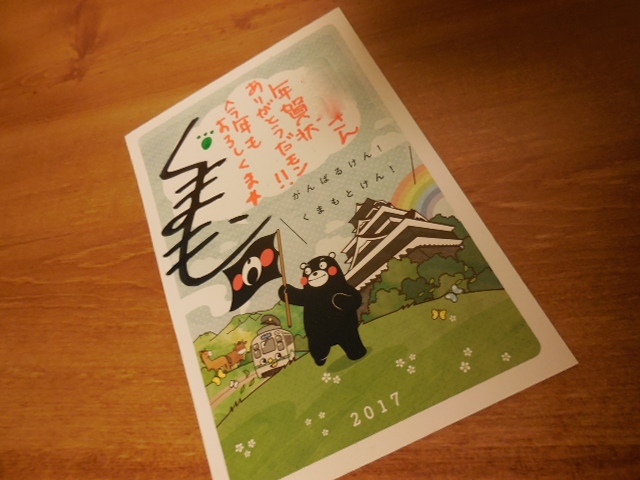 さん
年賀状
ありがとうだモン!!
今年も
よろしくま★
くまモン
がんばるけん!
くまもとけん!
2017